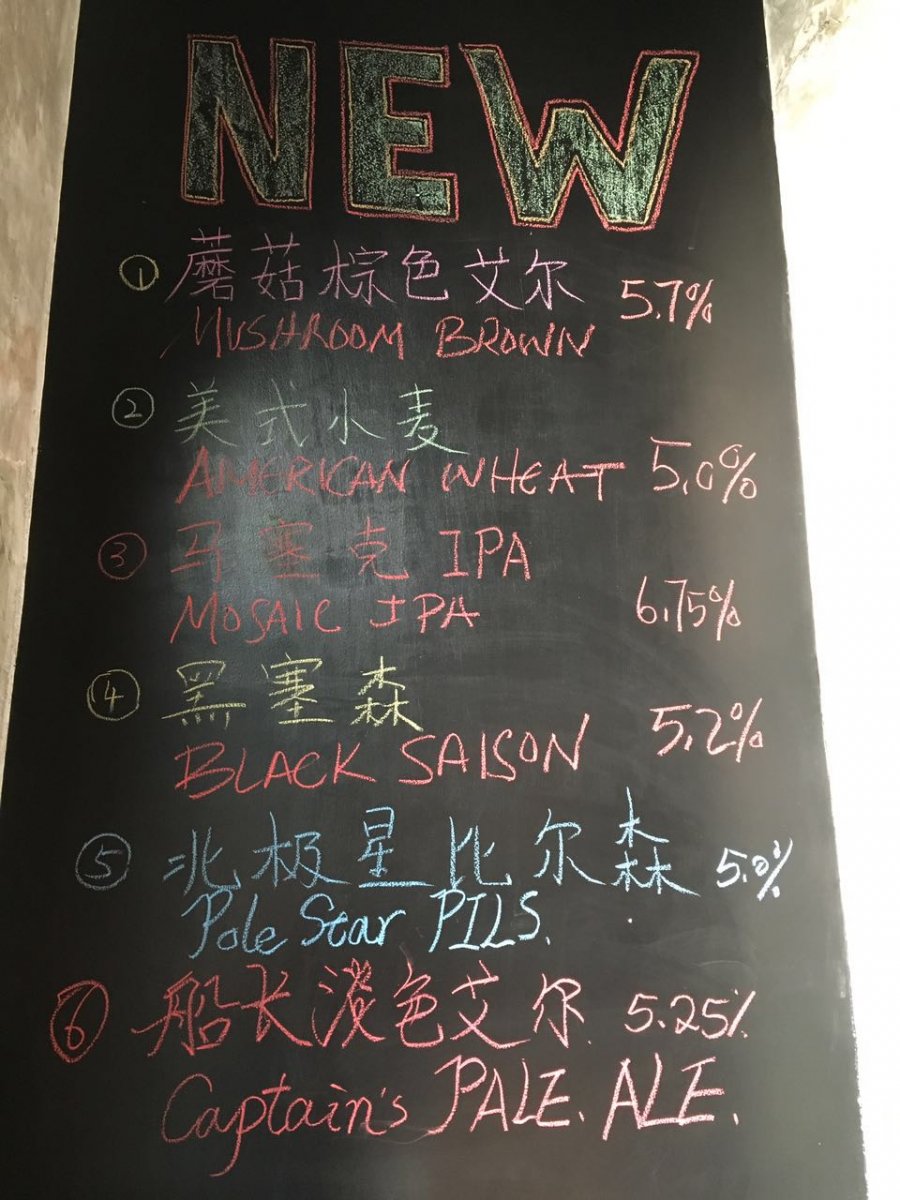 NEW
① 蘑菇棕色艾尔 5.7%
MUSHROOM BROWN
② 美式小麦
AMERICAN WHEAT 5.0%
③ 马塞克 IPA
MOSAIC IPA 6.75%
④ 黑塞森
BLACK SAISON 5.2%
⑤ 北极星比尔森 5.0%
Pole Star PILS.
⑥ 船长淡色艾尔 5.25%
Captain's PALE. ALE.